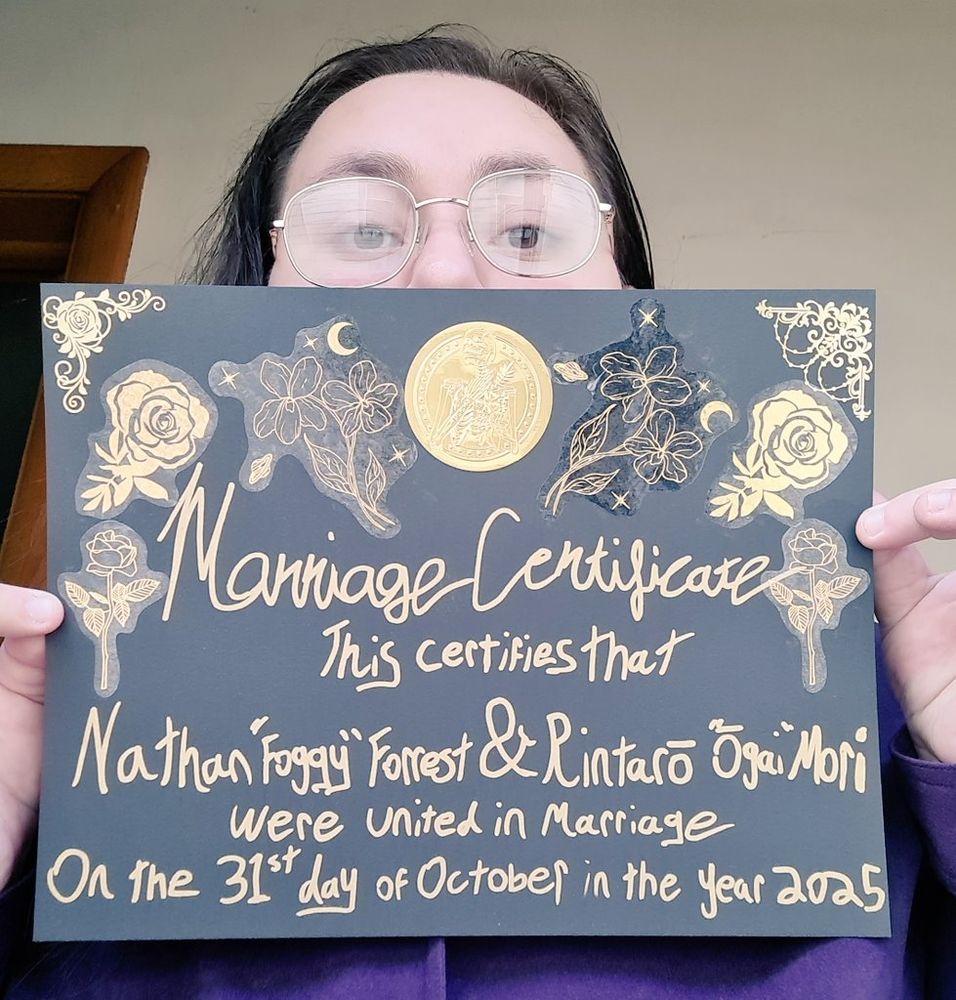 Marriage Certificate
This certifies that
Nathan "Foggy" Forrest & Rintarō "Ōgai" Mori
were united in Marriage
On the 31st day of October in the year 2025